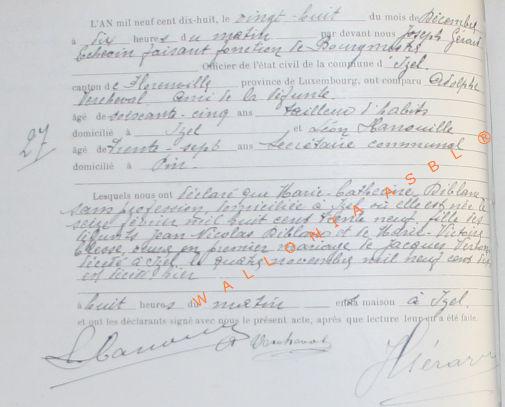 L'AN mil neuf cent dix-huit, le vingt-huit du mois de Décembre
à dix heures du matin par devant nous Joseph Gérard
Echevin faisant fonction de Bourgmestre
Officier de l'état civil de la commune d'Izel,
canton de Florenville province de Luxembourg, ont comparu Adolphe
Vercheval, ami de la défunte
âgé de soixante-cinq ans tailleur d'habits
domicilié à Izel et Léon Hanouille
âgé de trente-sept ans Secrétaire communal
domicilié à Pin.
27
Lesquels nous ont déclaré que Marie-Catherine
sans profession domiciliée à Izel où elle est née le
seize février mil huit cent trente neuf, fille des
défunts Jean-Nicolas et de Marie-Victoire
veuve en premier mariage de Jacques
décédé à Izel, le quatre novembre mil neuf cent
est décédée hier
à huit heures du matin en sa maison à Izel.
et ont les déclarants signé avec nous le présent acte, après que lecture leur en a été faite.
WALLONIA ASBL ®
Vercheval
JGérard